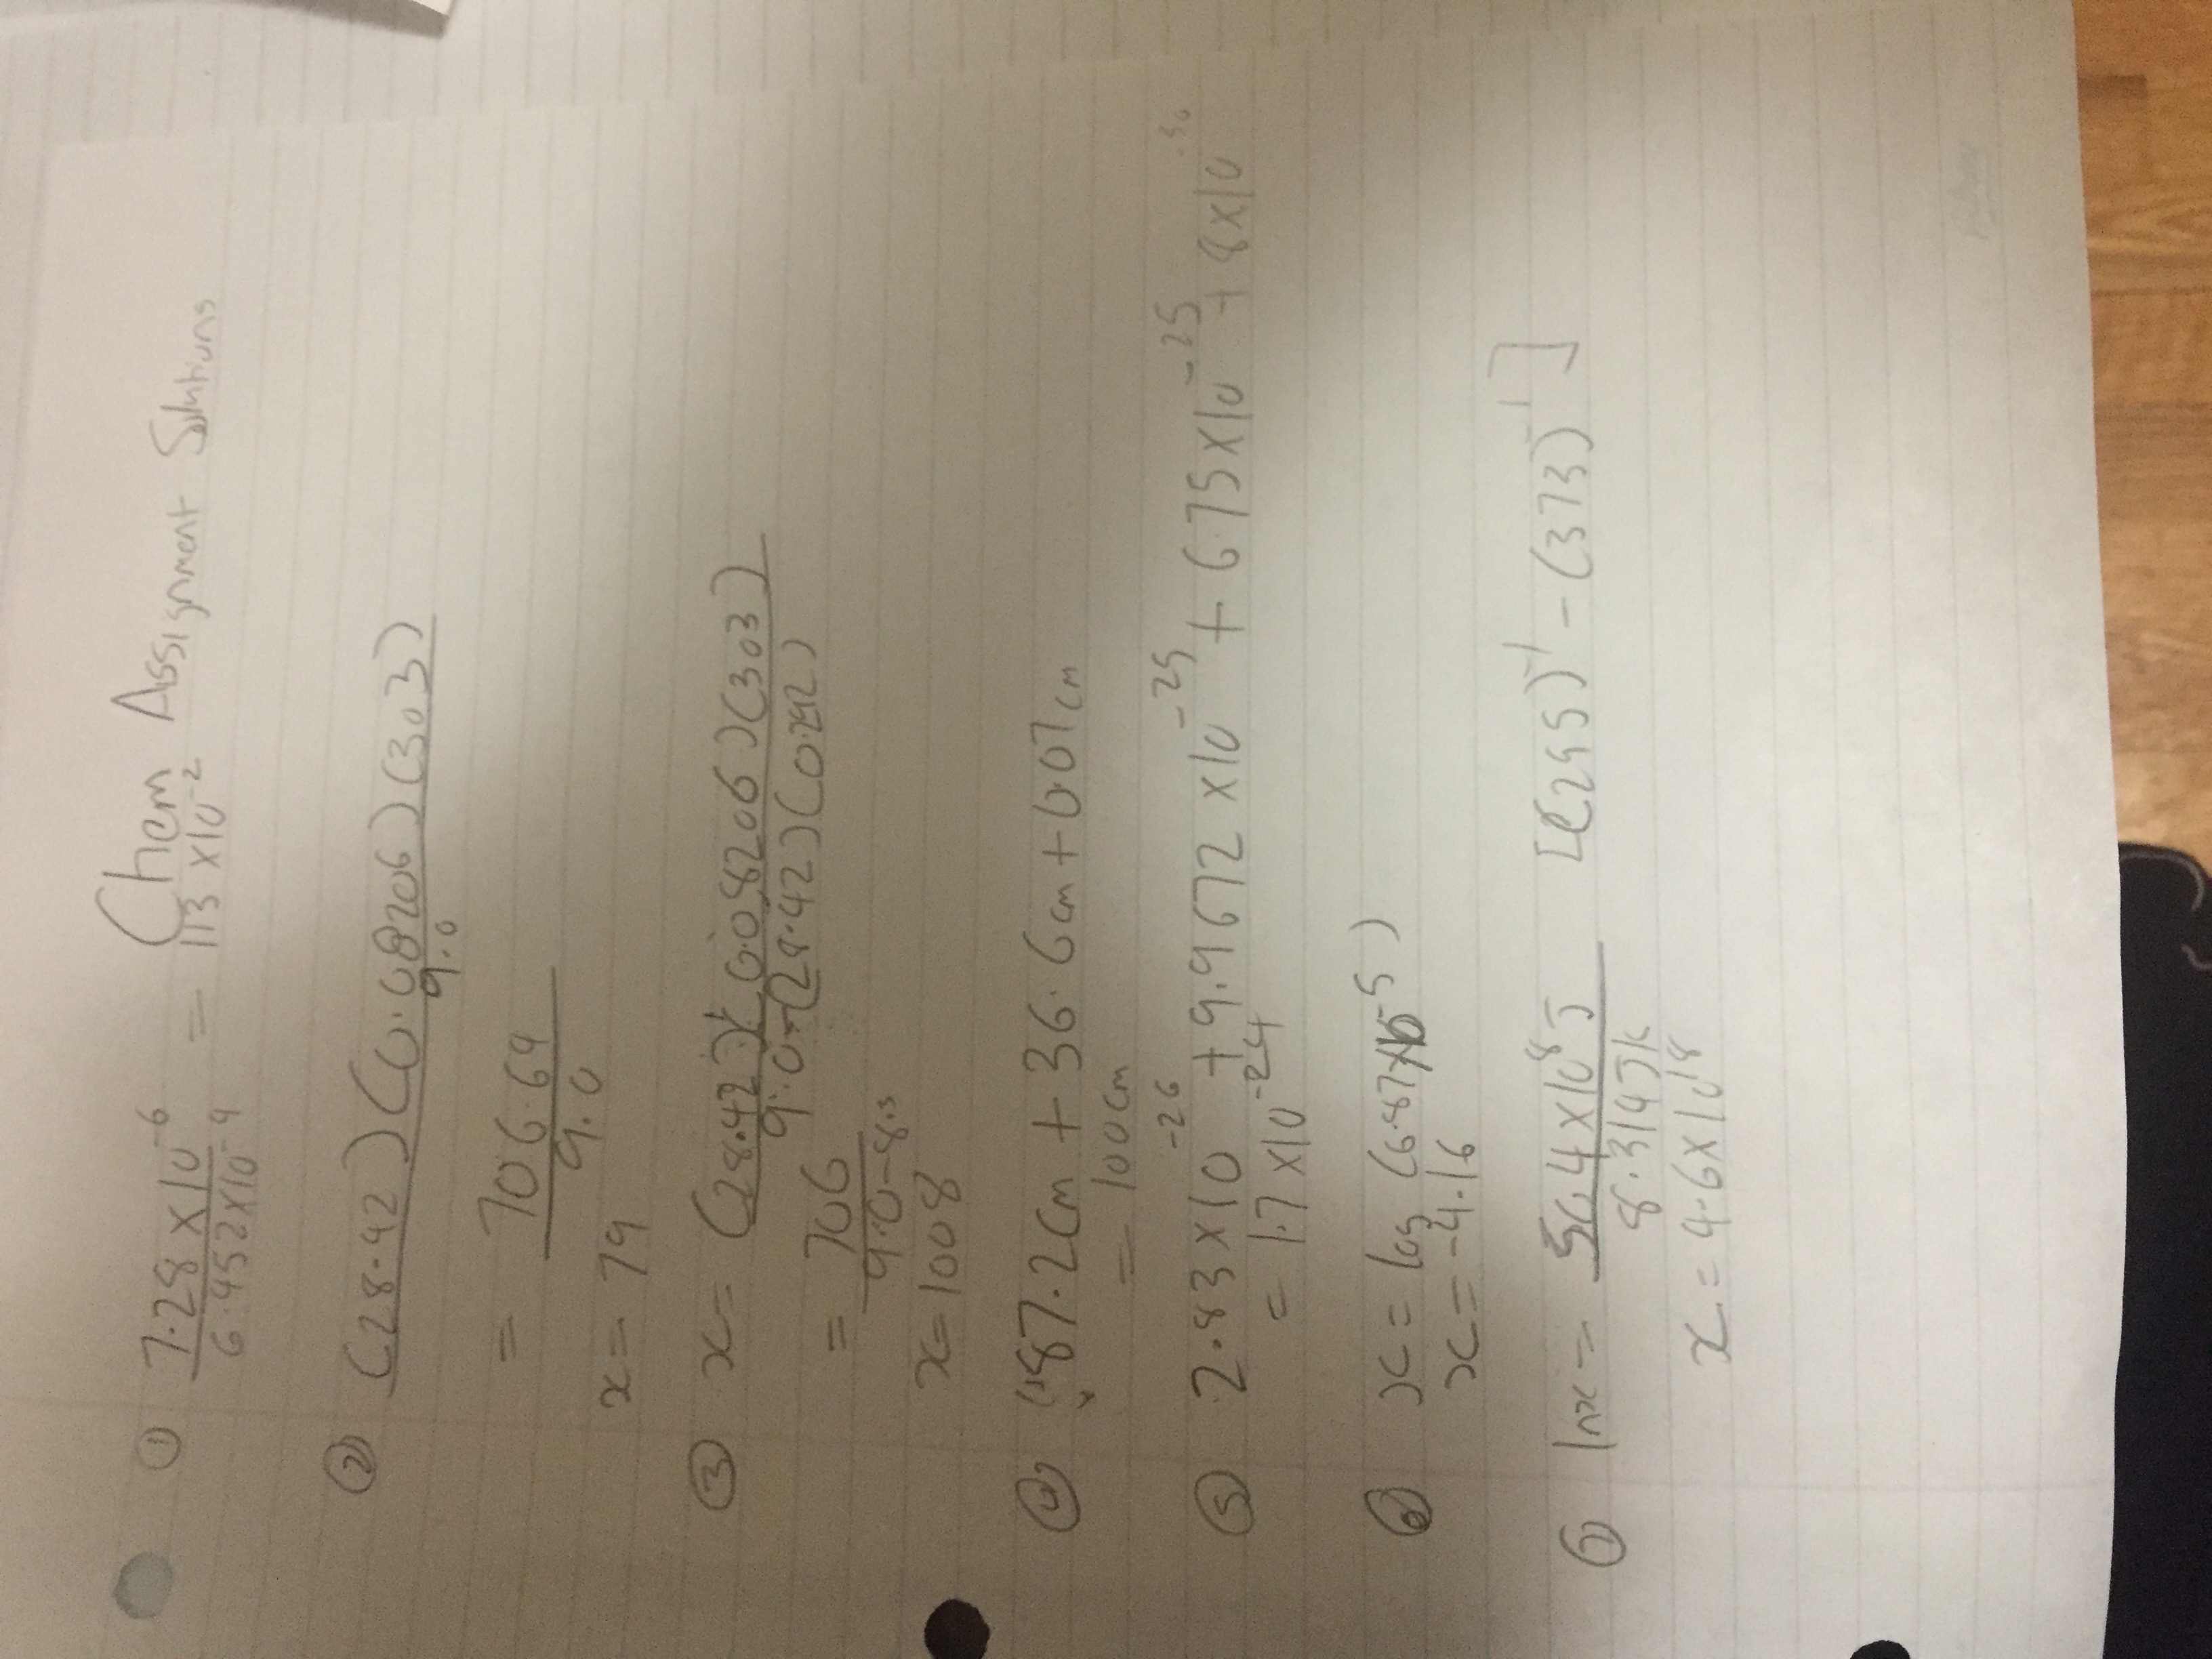 Chem Assignment Solutions
① 7.28 x 10^-6 / 6.452 x 10^-4 = 113 x 10^-2
② (28.42)(0.08206)(303) / 9.0
= 706.64 / 9.0
x = 79
③ x = (28.42)(0.08206)(303) / 9.0-(28.42)(0.292)
= 706 / 9.0-8.3
x = 1008
④ 87.2cm + 36.6cm + 0.07cm
= 100cm
⑤ 2.83 x 10^-26 + 9.9672 x 10^-25 + 6.75 x 10^-25 + 8 x 10^-30
= 1.7 x 10^-24
⑥ x = log (6.87 x 10^-5)
x = -4.16
⑦ lnx = 5.4 x 10^8 J / 8.314 J K [(295)^-1 - (373)^-1]
x = 4.6 x 10^18